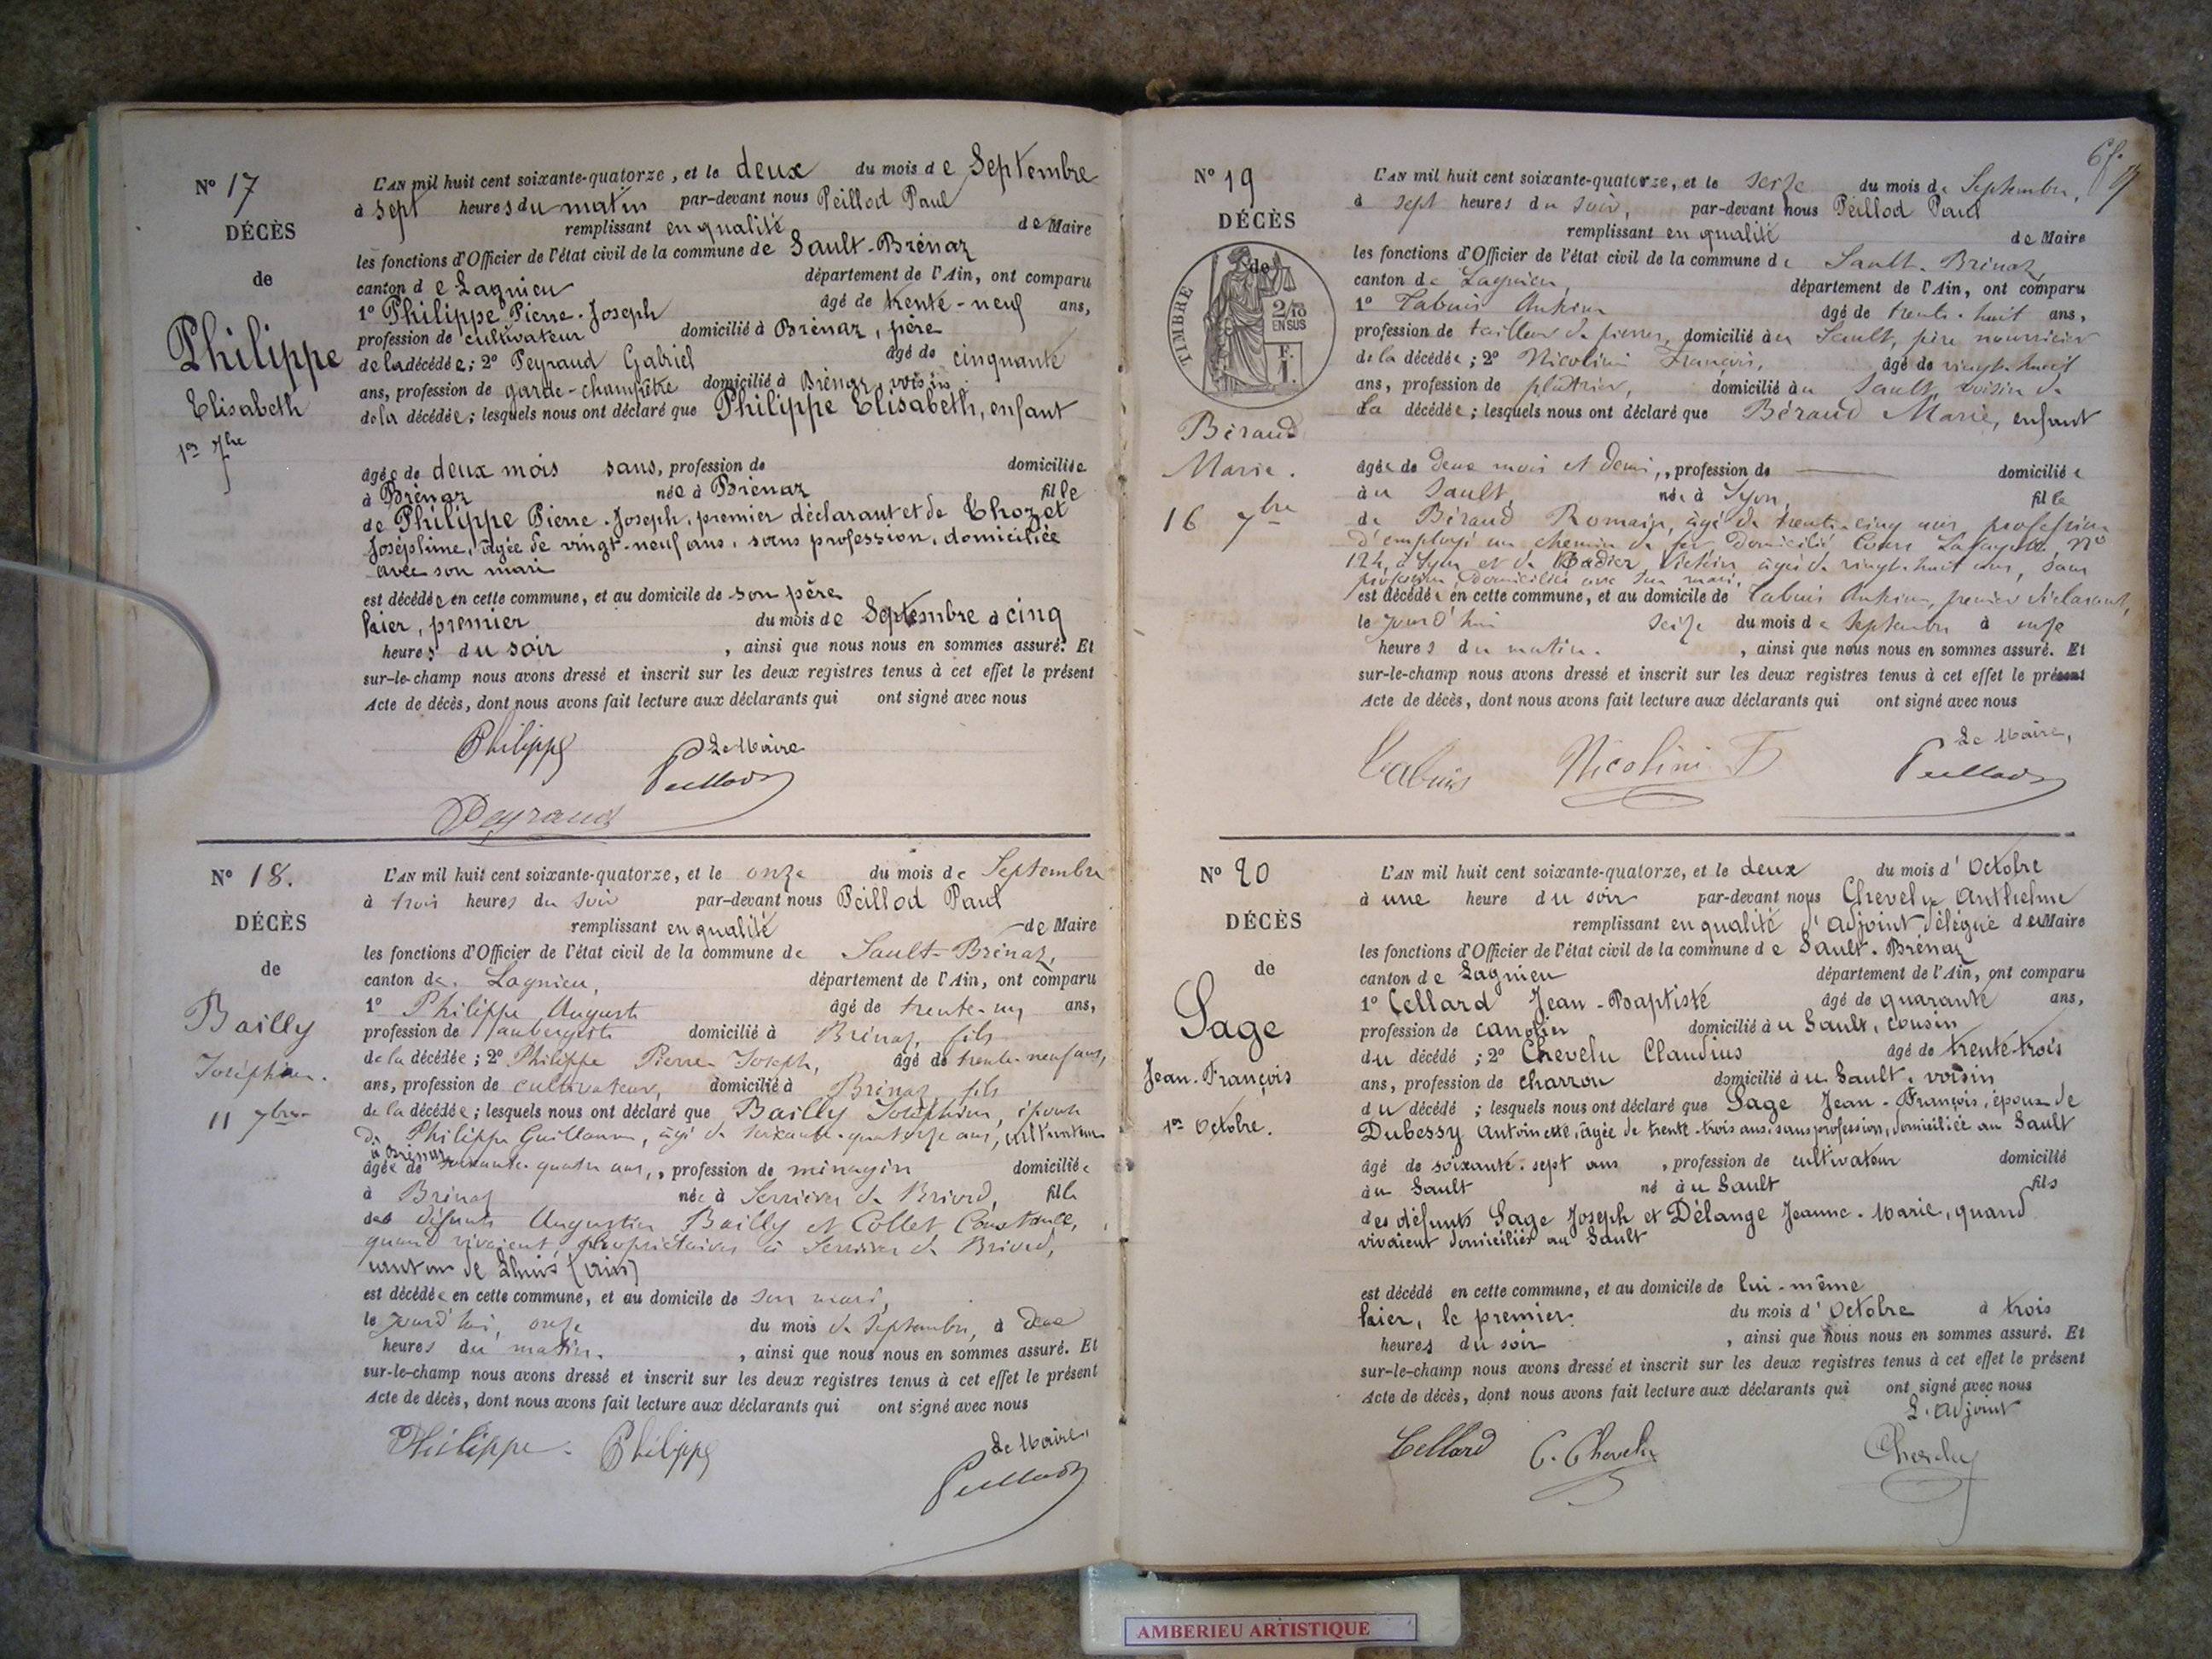 N° 17
DÉCÈS
de
Philippe
Elisabeth
1er 7bre
L'AN mil huit cent soixante-quatorze, et le deux du mois de Septembre
à sept heures du matin par-devant nous Peillod Paul
remplissant en qualité de Maire
les fonctions d'Officier de l'état civil de la commune de Sault-Brénaz
canton de Lagnieu département de l'Ain, ont comparu
1° Philippe Pierre-Joseph âgé de trente-neuf ans,
profession de cultivateur domicilié à Brénaz, père
de la décédée; 2° Peyraud Gabriel âgé de cinquante
ans, profession de garde-champêtre domicilié à Brénaz, voisin
de la décédée; lesquels nous ont déclaré que Philippe Elisabeth, enfant
âgée de deux mois sans, profession de domiciliée
à Brénaz née à Brénaz fille
de Philippe Pierre-Joseph, premier déclarant et de Thozet
Joséphine, âgée de vingt-neuf ans, sans profession, domiciliée
avec son mari
est décédée en cette commune, et au domicile de son père
hier, premier du mois de Septembre à cinq
heures du soir , ainsi que nous nous en sommes assuré. Et
sur-le-champ nous avons dressé et inscrit sur les deux registres tenus à cet effet le présent
Acte de décès, dont nous avons fait lecture aux déclarants qui ont signé avec nous
Philippe Le Maire
Peillod
Peyraud
N° 18.
DÉCÈS
de
Bailly
Joséphine.
11 7bre
L'AN mil huit cent soixante-quatorze, et le onze du mois de Septembre
à trois heures du soir par-devant nous Peillod Paul
remplissant en qualité de Maire
les fonctions d'Officier de l'état civil de la commune de Sault-Brénaz,
canton de Lagnieu, département de l'Ain, ont comparu
1° Philippe Auguste âgé de trente-un ans,
profession de aubergiste domicilié à Brénaz, fils
de la décédée; 2° Philippe Pierre Joseph, âgé de trente-neuf ans,
ans, profession de cultivateur, domicilié à Brénaz fils
de la décédée; lesquels nous ont déclaré que Bailly Joséphine, épouse
de Philippe Guillaume, âgé de soixante-quatorze ans, cultivateur
à Brénaz
âgée de soixante-quatre ans, , profession de ménagère domiciliée
à Brénaz née à Serrières de Briord, fille
des défunts Augustin Bailly et Collet Constance,
quand vivaient, propriétaires à Serrières de Briord,
canton de Lhuis (Ain)
est décédée en cette commune, et au domicile de son mari,
le jourd'hui, onze du mois de Septembre, à deux
heures du matin. , ainsi que nous nous en sommes assuré. Et
sur-le-champ nous avons dressé et inscrit sur les deux registres tenus à cet effet le présent
Acte de décès, dont nous avons fait lecture aux déclarants qui ont signé avec nous
Philippe Philippe Le Maire,
Peillod
N° 19
DÉCÈS
de
TIMBRE
2/10
EN SUS
Béraud
Marie.
16 7bre
L'AN mil huit cent soixante-quatorze, et le seize du mois de Septembre,
à sept heures du soir, par-devant nous Peillod Paul
remplissant en qualité de Maire
les fonctions d'Officier de l'état civil de la commune de Sault-Brénaz,
canton de Lagnieu, département de l'Ain, ont comparu
1° Tabuis âgé de trente-huit ans,
profession de tailleur de pierres, domicilié au Sault, père nourricier
de la décédée; 2° Nicolini François, âgé de vingt-huit
ans, profession de plâtrier, domicilié au Sault voisin de
la décédée; lesquels nous ont déclaré que Béraud Marie, enfant
âgée de deux mois et demi, , profession de domiciliée
à au Sault, née à Lyon, fille
de Béraud Romain, âgé de trente-cinq ans, profession
d'employé au chemin de fer domicilié Cours Lafayette, N°
124, à Lyon et de âgée de vingt-huit ans, sans
profession, domiciliée avec son mari,
est décédée en cette commune, et au domicile de Tabuis premier déclarant,
le jourd'hui seize du mois de Septembre à onze
heures du matin. , ainsi que nous nous en sommes assuré. Et
sur-le-champ nous avons dressé et inscrit sur les deux registres tenus à cet effet le présent
Acte de décès, dont nous avons fait lecture aux déclarants qui ont signé avec nous
Tabuis Nicolini F Le Maire,
Peillod
N° 20
DÉCÈS
de
Sage
Jean-François
1er Octobre.
L'AN mil huit cent soixante-quatorze, et le deux du mois d'Octobre
à une heure du soir par-devant nous Chevelu Anthelme
remplissant en qualité d'Adjoint délégué du Maire
les fonctions d'Officier de l'état civil de la commune de Sault-Brénaz
canton de Lagnieu département de l'Ain, ont comparu
1° Cellard Jean-Baptiste âgé de quarante ans,
profession de domicilié au Sault, cousin
du décédé ; 2° Chevelu Claudius âgé de trente-trois
ans, profession de charron domicilié au Sault, voisin
du décédé ; lesquels nous ont déclaré que Sage Jean-François, époux de
Dubessy Antoinette, âgée de trente-trois ans, sans profession, domiciliée au Sault
âgé de soixante-sept ans , profession de cultivateur domicilié
au Sault né au Sault fils
des défunts Sage Joseph et Délange Jeanne-Marie, quand
vivaient domiciliés au Sault
est décédé en cette commune, et au domicile de lui-même
hier, le premier. du mois d'Octobre à trois
heures du soir , ainsi que nous nous en sommes assuré. Et
sur-le-champ nous avons dressé et inscrit sur les deux registres tenus à cet effet le présent
Acte de décès, dont nous avons fait lecture aux déclarants qui ont signé avec nous
L'Adjoint
Cellard C. Chevelu Chevelu
AMBERIEU ARTISTIQUE